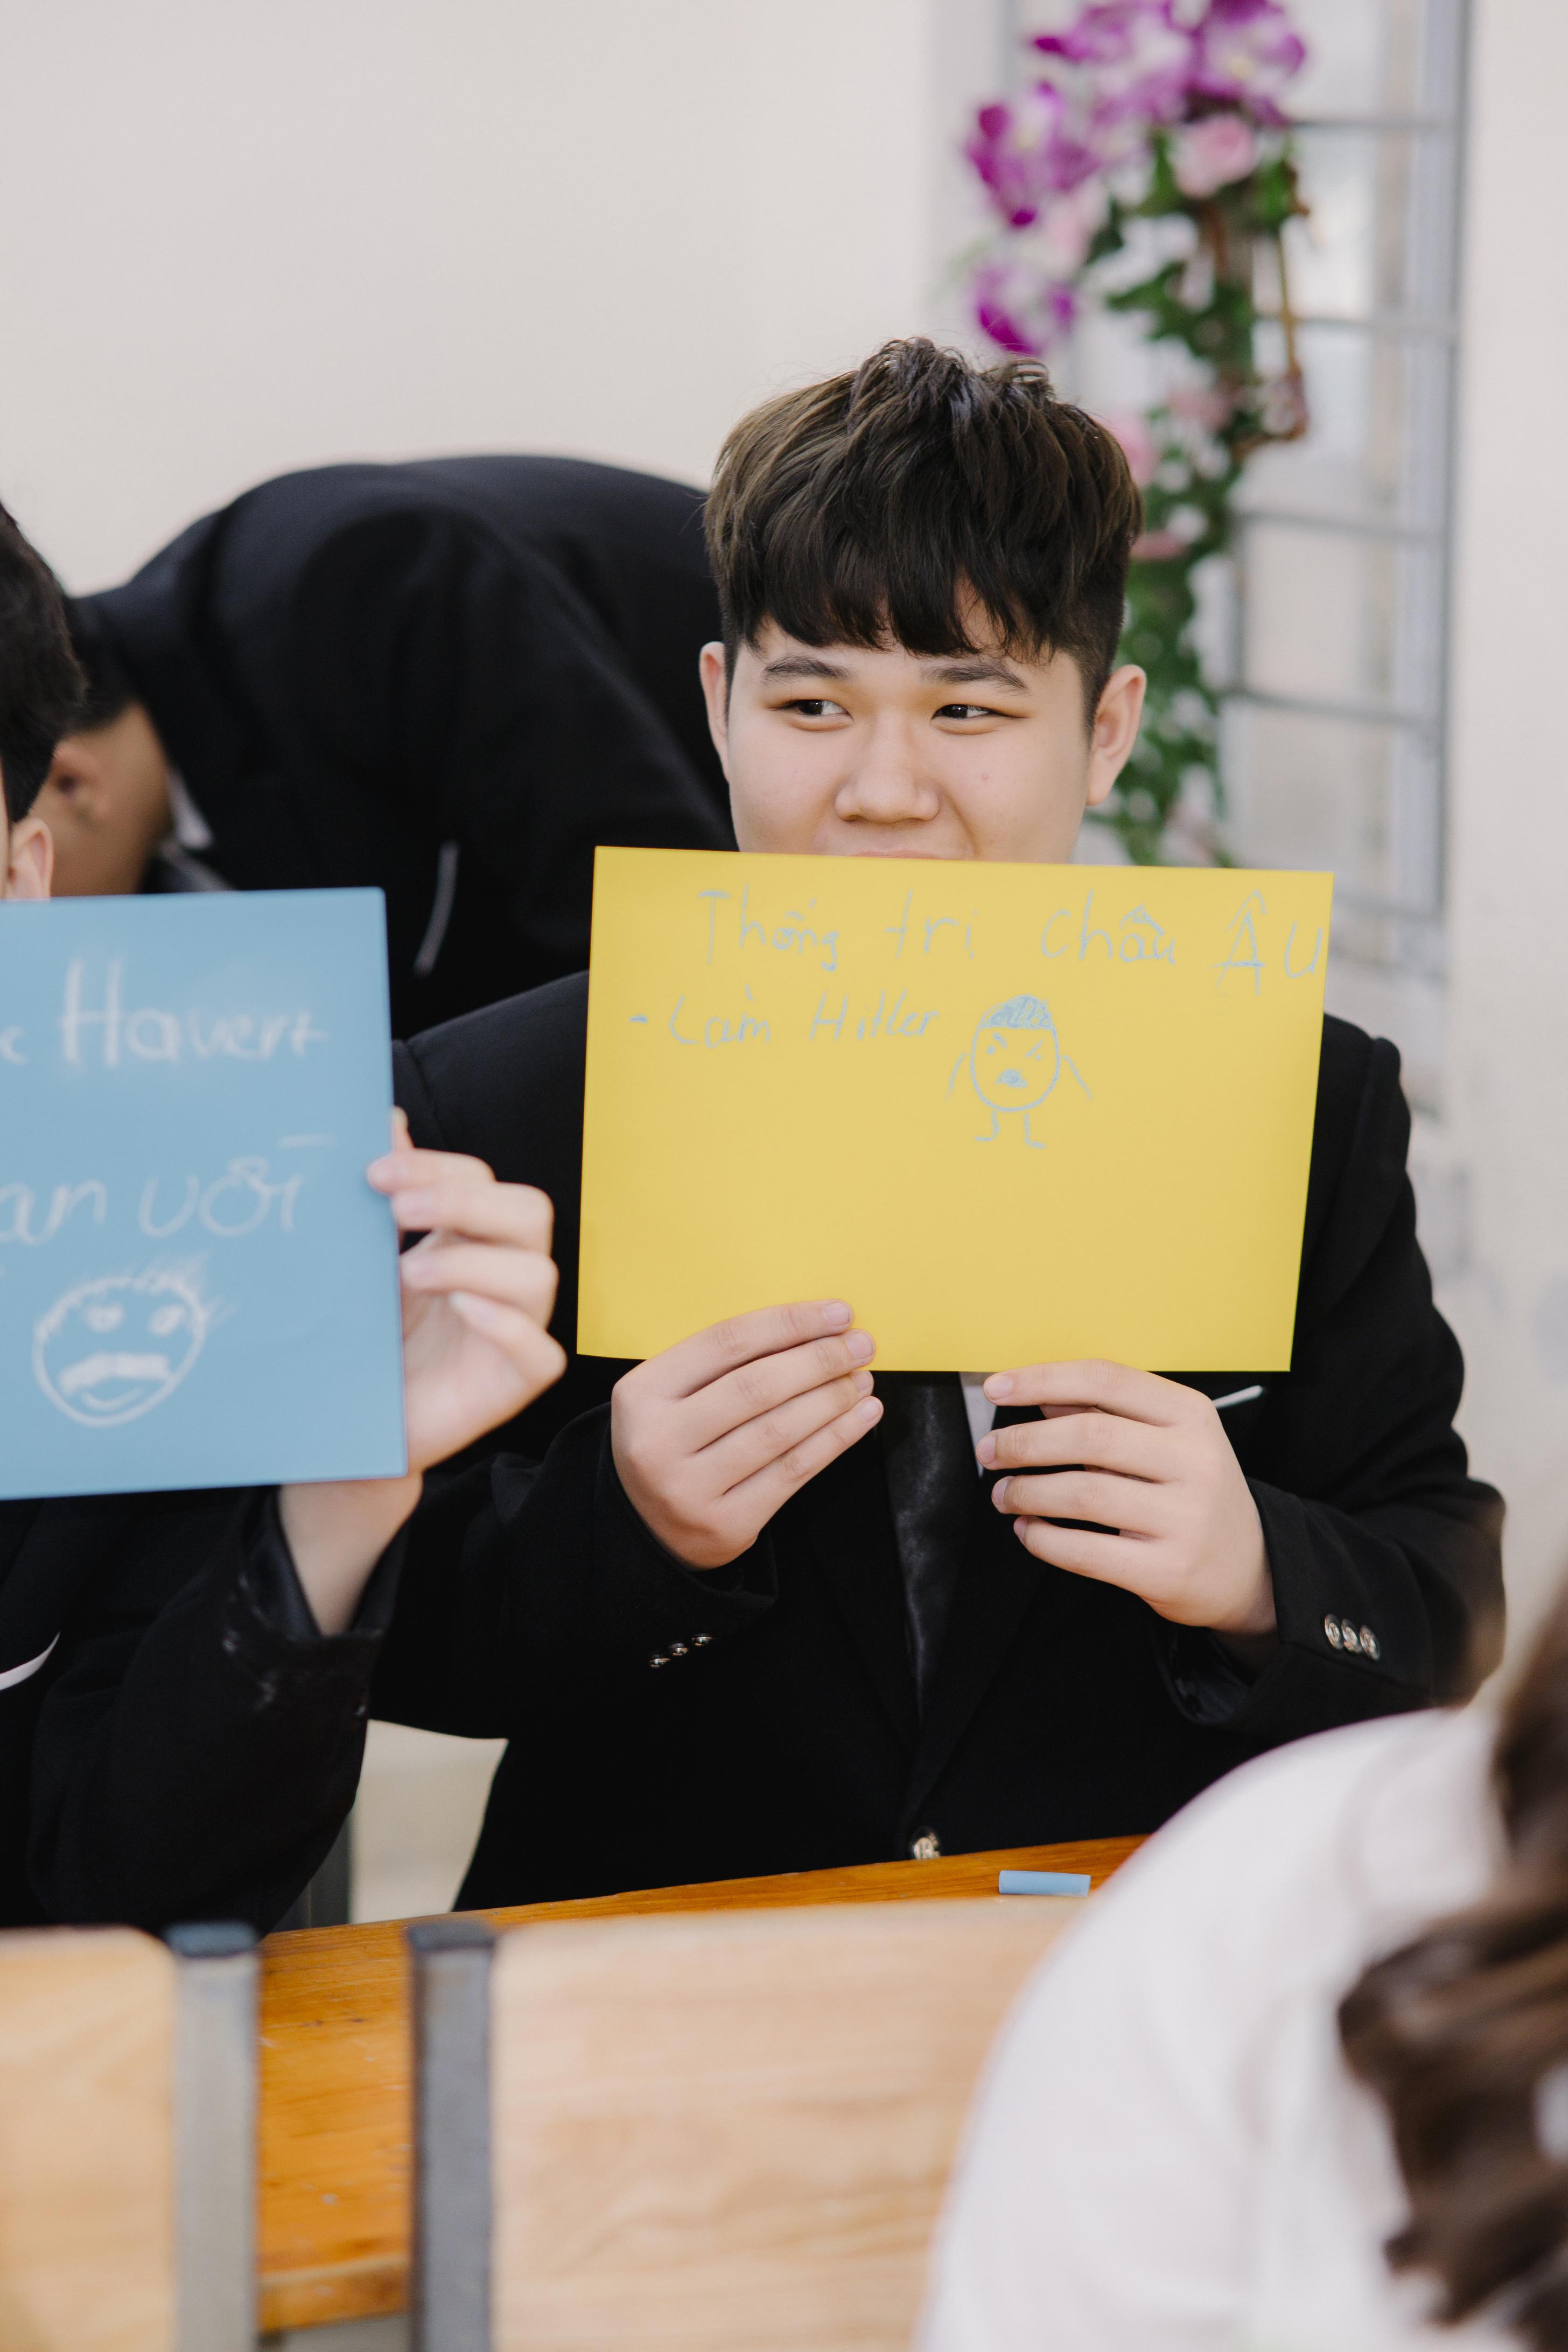 Havert
an với
Thống trị Châu ÂU
- Làm Hitler